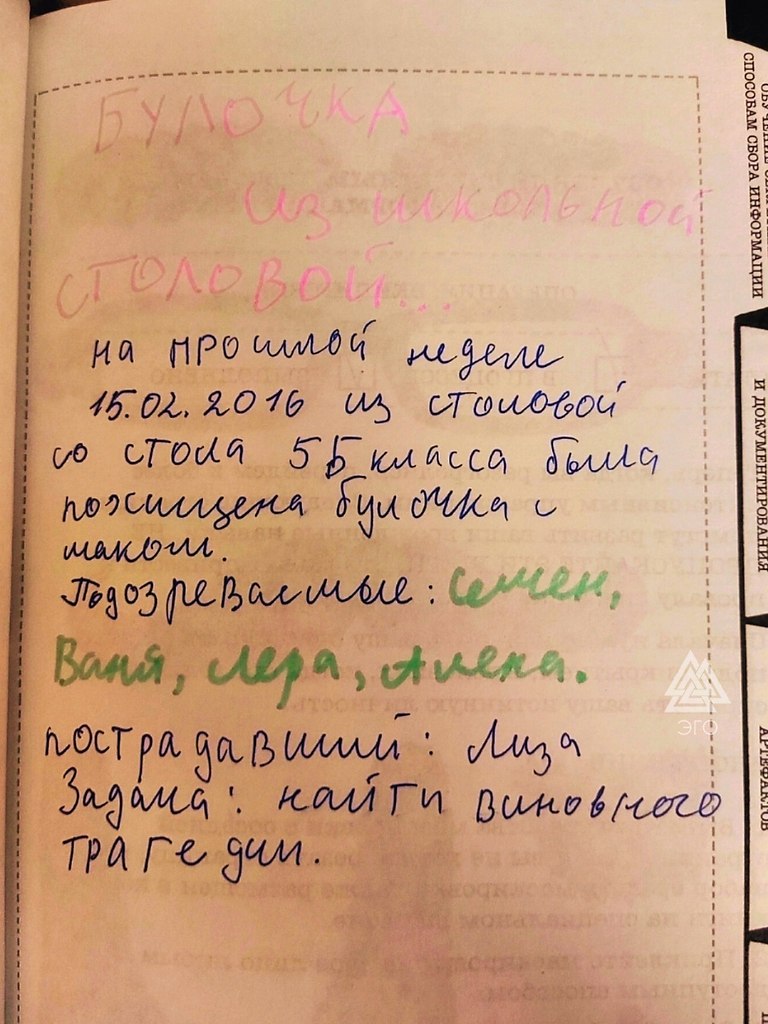 БУЛОЧКА
ИЗ ШКОЛЬНОЙ
СТОЛОВОЙ...
на прошлой неделе
15.02.2016 из столовой
со стола 5Б класса была
похищена булочка с
маком.
Подозреваемые: Семен,
Ваня, Лера, Алена.
пострадавший: Лиза
Задача: найти виновного
трагедии.
ЭГО
СПОСОБАМ СБОРА ИНФОРМАЦИИ
И ДОКУМЕНТИРОВАНИЯ
АРТЕФАКТОВ